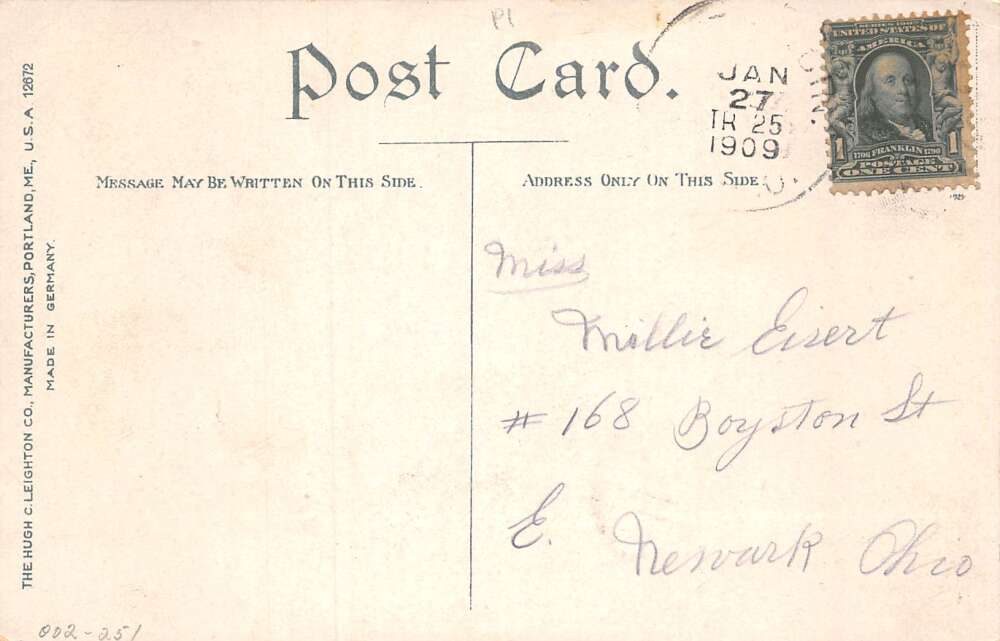 P1
Post Card.
JAN
27
TR 25
1909
SERIES 1902
UNITED STATES OF
AMERICA
1 1
1706 FRANKLIN 1790
POSTAGE
ONE CENT
MESSAGE MAY BE WRITTEN ON THIS SIDE.
ADDRESS ONLY ON THIS SIDE.
THE HUGH C. LEIGHTON CO., MANUFACTURERS, PORTLAND, ME., U.S.A 12672
MADE IN GERMANY.
Miss
Millie Eisert
# 168 Boyston St
E. Newark Ohio
002-251